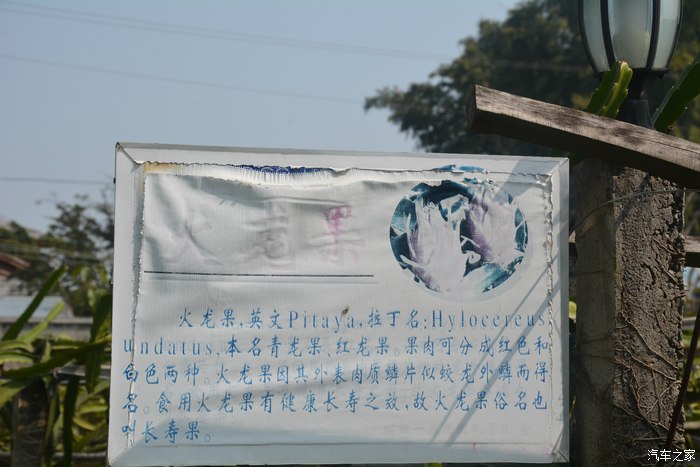 火龙果
火龙果,英文Pitaya,拉丁名:Hylocereus
undatus,本名青龙果、红龙果。果肉可分成红色和
白色两种。火龙果因其外表肉质鳞片似蛟龙外鳞而得
名。食用火龙果有健康长寿之效,故火龙果俗名也
叫长寿果。
汽车之家